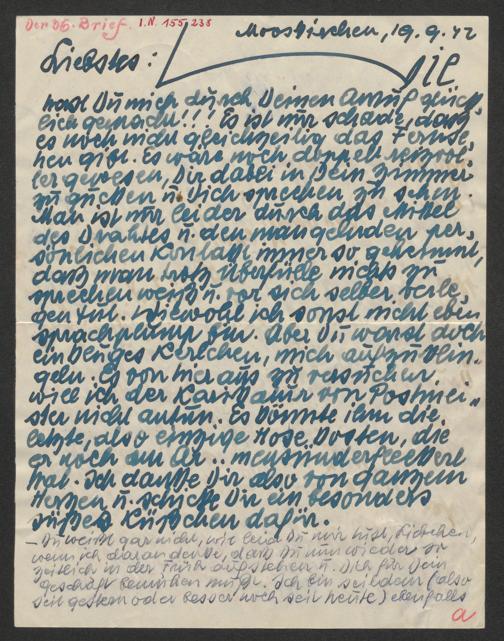 Der 36. Brief. I.N. 155.238
Mooskirchen, 19.9.42
Liebstes: Die
hast Du mich durch Deinen Anruf glück-
lich gemacht!!! Es ist nur schade, daß
es noch nicht gleichzeitig das Fernse-
hen gibt. Es wäre noch doppelt reizvol-
ler gewesen, Dir dabei in Dein Zimmer
zu gucken u. Dich sprechen zu sehen.
Man ist nur leider durch das Mittel
des Drahtes u. den mangelnden per-
sönlichen Kontakt immer so gehemmt,
daß man trotz Überfülle nichts zu
sprechen weiß u. vor sich selber verle-
gen tut. Wiewohl ich sonst nicht eben
sprachplump bin. Aber Du warst doch
ein beherztes Kerlchen, mich aufzuklin-
geln. Es von hier aus zu versuchen,
will ich der Karikatur von Postmei-
ster nicht antun. Es könnte ihm die
letzte, also einzige Hose kosten, die
er noch am Ar..
hat. Ich danke Dir also von ganzem
Herzen u. schicke Dir ein besonders
süßes Küßchen dafür.
– Du weißt gar nicht, wie leid Du mir tust, Liebchen,
wenn ich daran denke, daß Du nun wieder so
zeitlich in der Früh aufstehen u. Dich für Dein
Geschäft bemühen mußt. Ich bin seitdem (also
seit gestern oder besser noch seit heute) ebenfalls
a